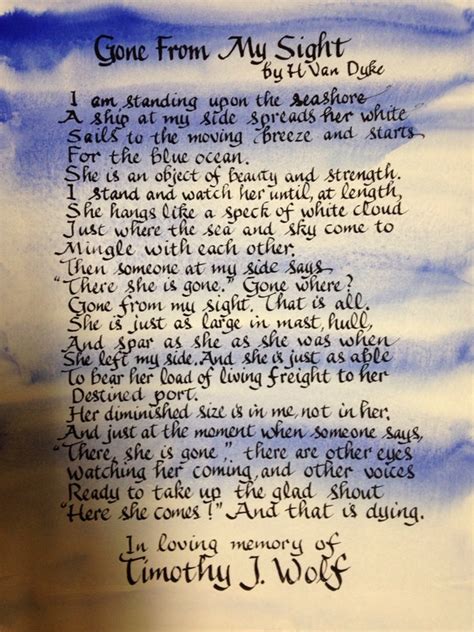 Gone From My Sight
by H Van Dyke
I am standing upon the seashore
A ship at my side spreads her white
Sails to the moving breeze and starts
For the blue ocean.
She is an object of beauty and strength.
I stand and watch her until, at length,
She hangs like a speck of white cloud
Just where the sea and sky come to
Mingle with each other.
Then someone at my side says
"There she is gone." Gone where?
Gone from my sight. That is all.
She is just as large in mast, hull,
And spar as she as she was when
She left my side. And she is just as able
To bear her load of living freight to her
Destined port.
Her diminished size is in me, not in her.
And just at the moment when someone says,
"There, she is gone". there are other eyes
watching her coming, and other voices
Ready to take up the glad shout
"Here she comes!" And that is dying.
In loving memory of
Timothy J. Wolf